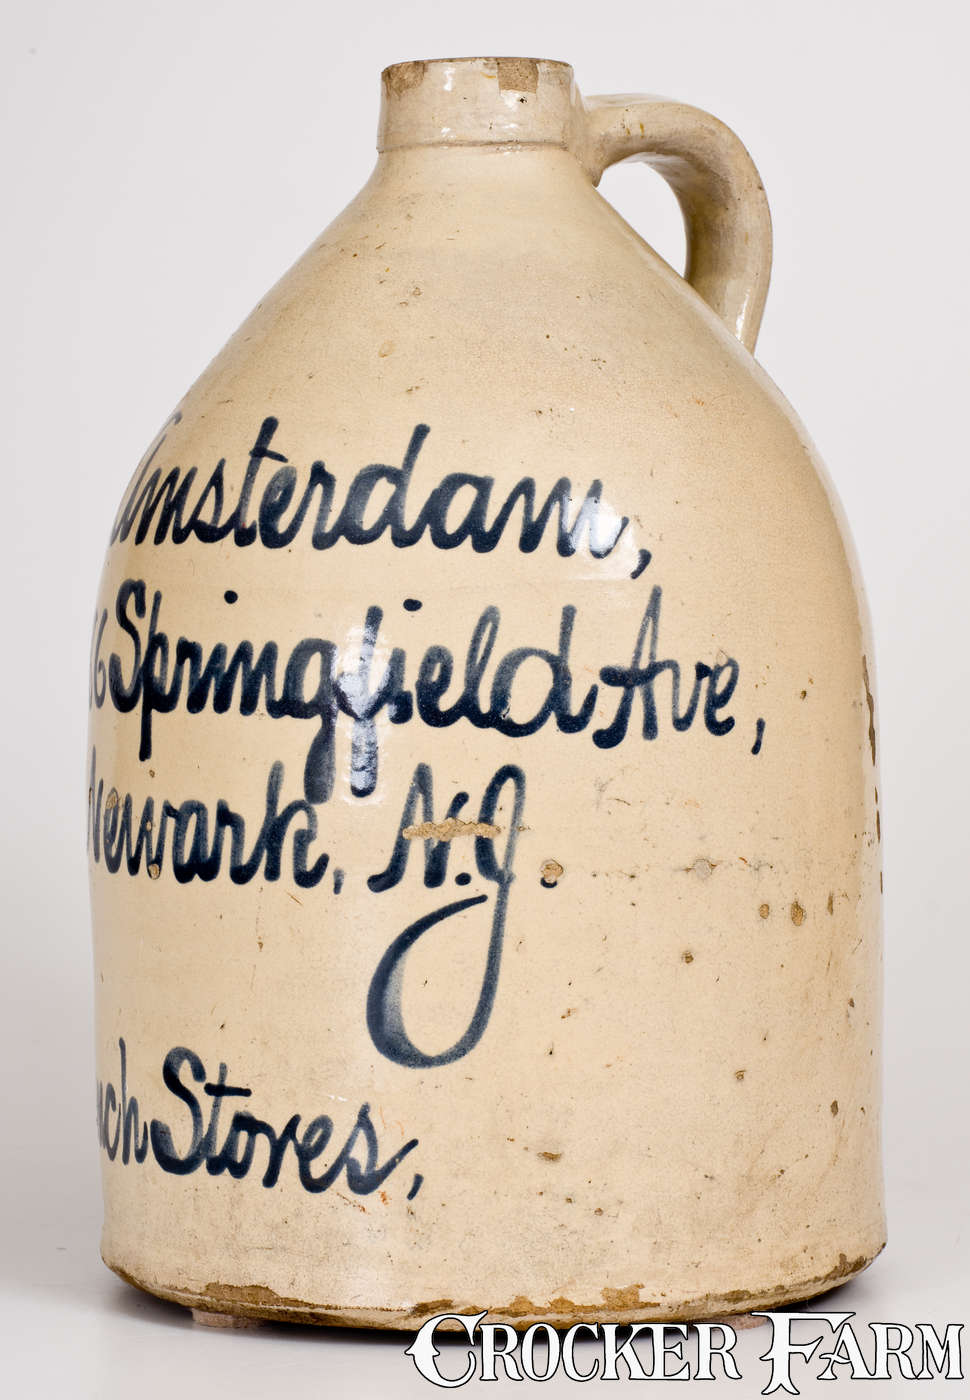 Amsterdam,
Springfield Ave,
Newark, N.J.
Stores,
CROCKER FARM